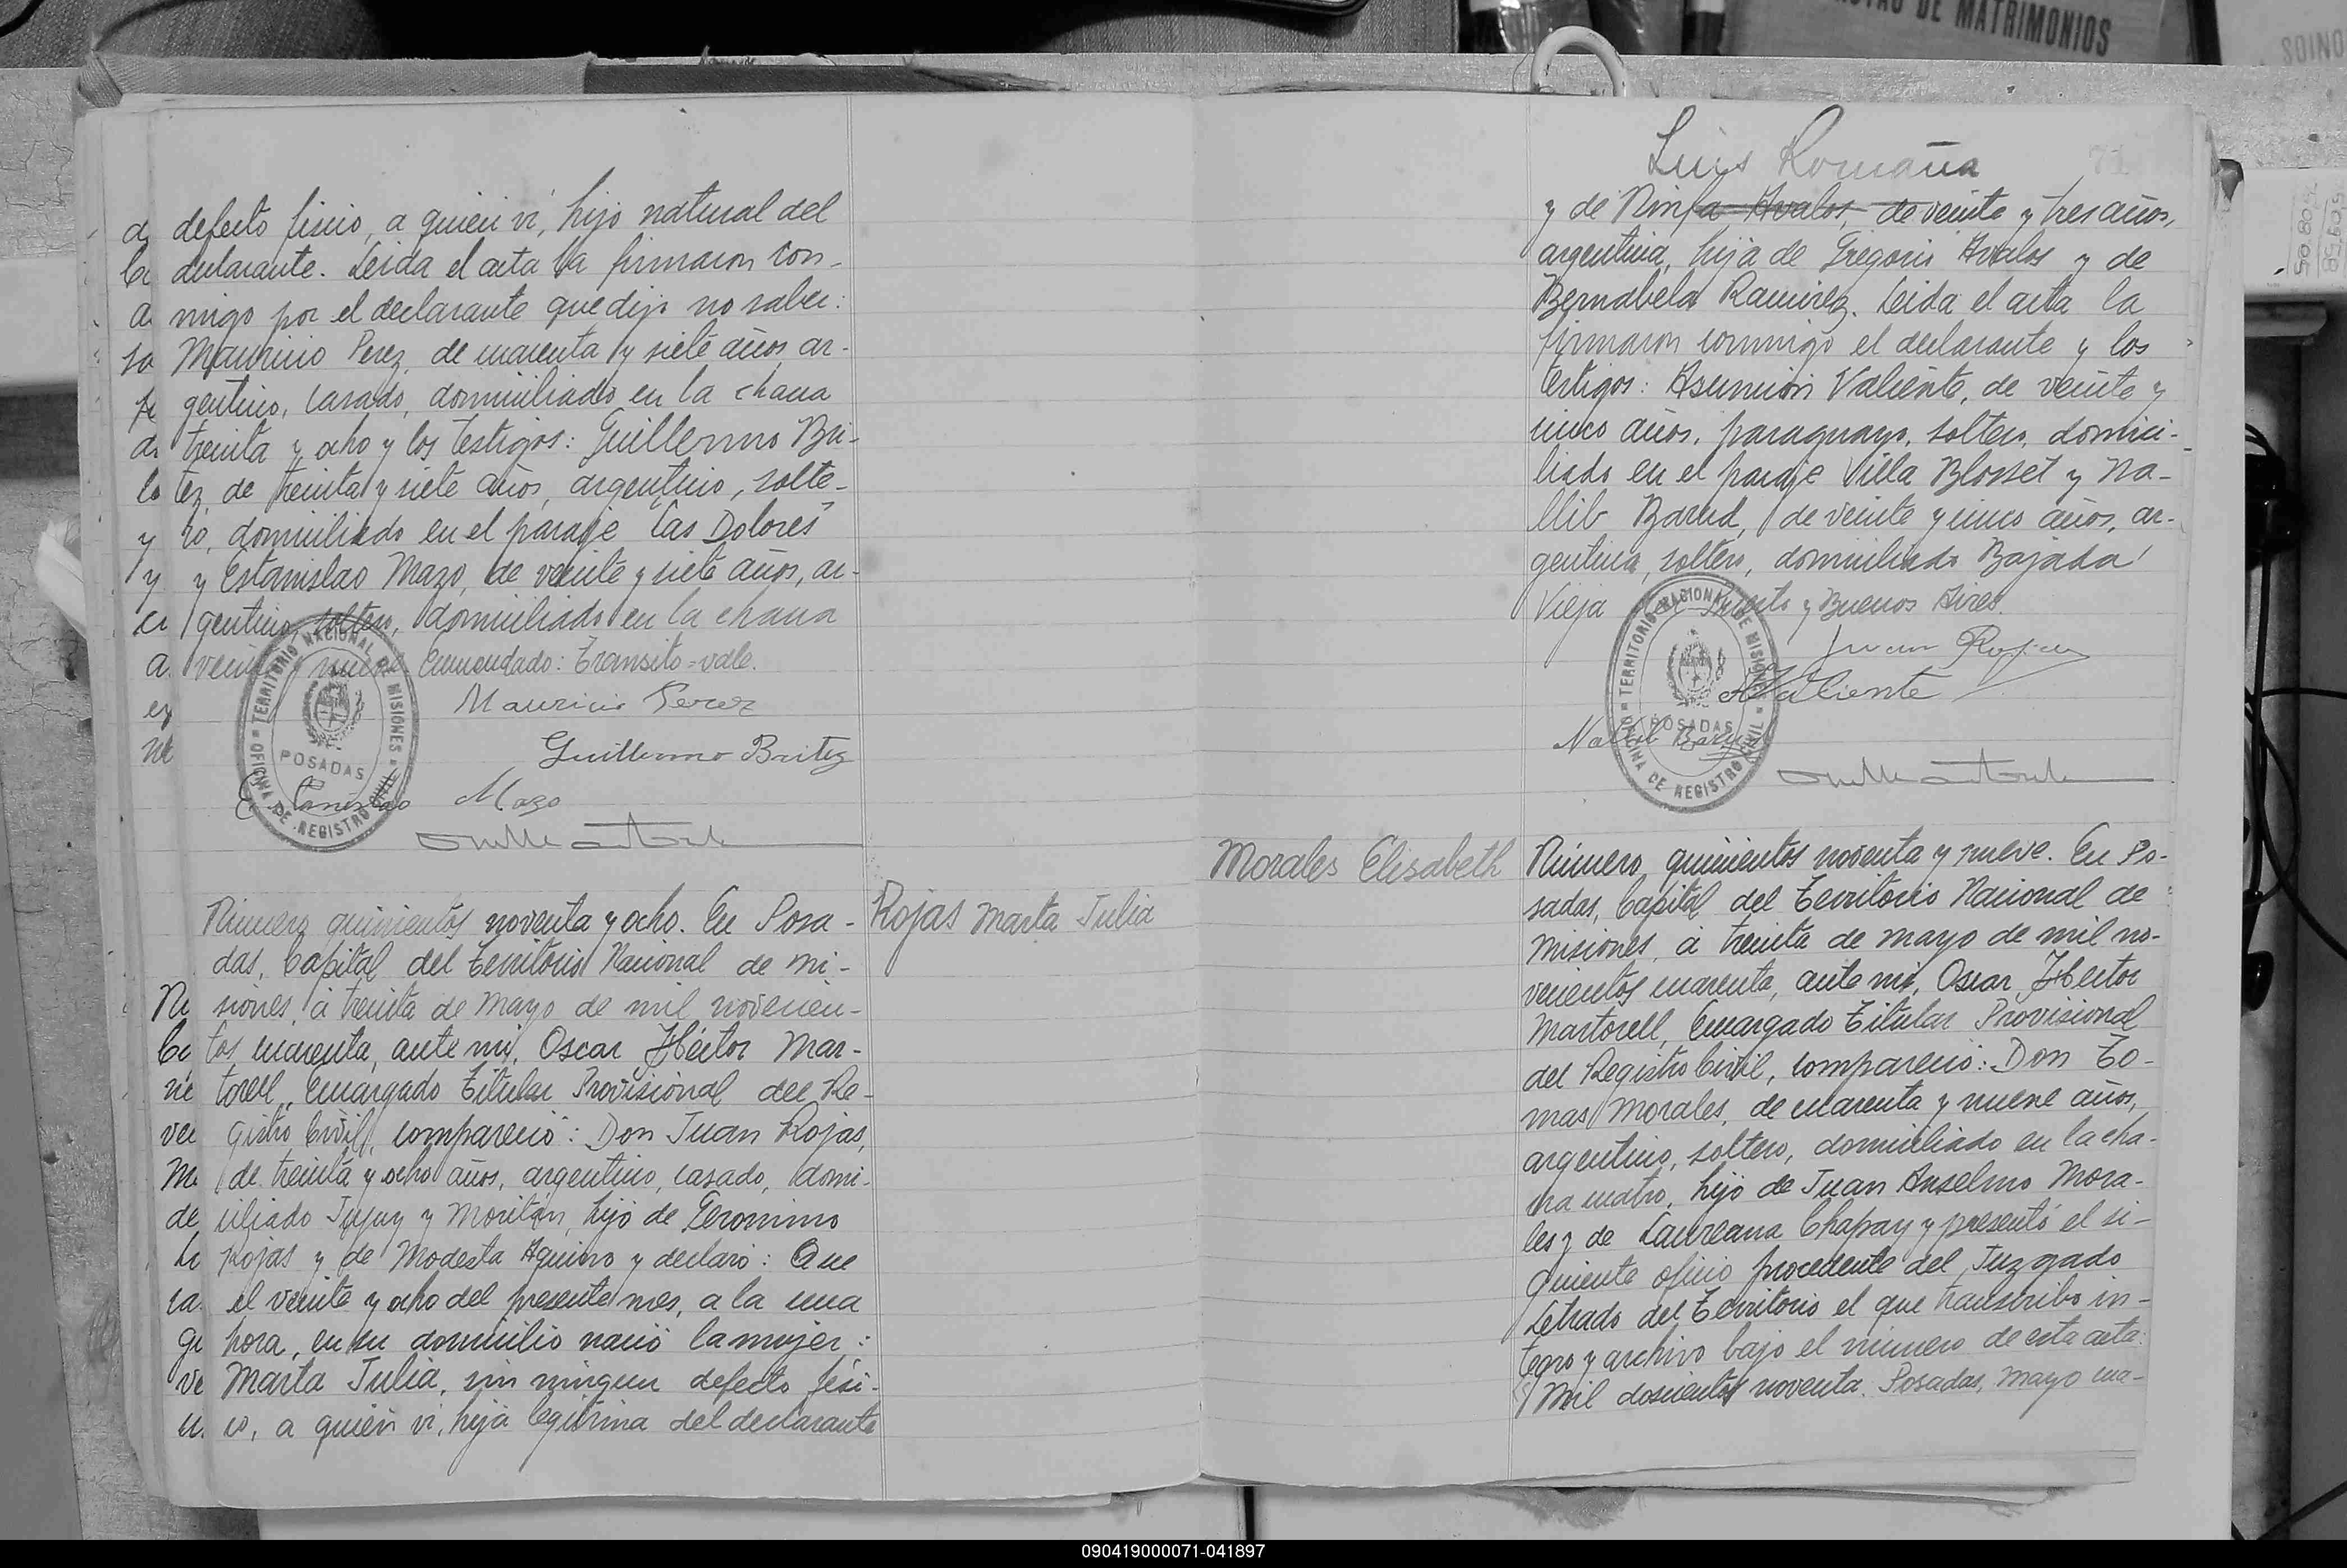 defecto fisico, a quien vi, hijo natural del
declarante. Leida el acta la firmaron con-
migo por el declarante que dijo no saber:
Mauricio Perez, de cuarenta y siete años ar-
gentino, casado, domiciliado en la chacra
treinta y ocho y los testigos: Guillermo Bri-
tez, de treinta y siete años, argentino, solte-
ro, domiciliado en el paraje "Las Dolores"
y Estanislao Mazo, de veinte y siete años, ar-
gentino, soltero, domiciliado en la chacra
veinte y nueve Enmendado: Transito=vale.
Mauricio Perez
Guillermo Britez
Estanislao Mazo
TERRITORIO NACIONAL DE MISIONES
OFICINA DE REGISTRO CIVIL
POSADAS
Número quinientos noventa y ocho. En Posa-
das, Capital del Territorio Nacional de Mi-
siones, á treinta de Mayo de mil novecien-
tos cuarenta, ante mi, Oscar Héctor Mar-
torell, Encargado Titular Provisional del Re-
gistro Civil, compareció: Don Juan Rojas,
de treinta y ocho años, argentino, casado, domi-
ciliado Jujuy y Moritán, hijo de Geronimo
Rojas y de Modesta Aquino y declaró: Que
el veinte y ocho del presente mes, a la una
hora, en su domicilio nació la mujer:
Marta Julia, sin ningun defecto fisi-
co, a quien vi, hija legitima del declarante
Rojas Marta Julia
Luis Romaña
71
y de Ninfa Avalos, de veinte y tres años,
argentina, hija de Gregorio Avalos y de
Bernabela Ramirez. Leida el acta la
firmaron conmigo el declarante y los
testigos: Asunción Valiente, de veinte y
cinco años, paraguayo, soltero, domici-
liado en el paraje Villa Blosset y Na-
llib Barud, de veinte y cinco años, ar-
gentino, soltero, domiciliado Bajada
Vieja del Puerto y Buenos Aires.
Juan Rojas
A Valiente
TERRITORIO NACIONAL DE MISIONES
OFICINA DE REGISTRO CIVIL
POSADAS
Morales Elisabeth
Número quinientos noventa y nueve. En Po-
sadas, Capital del Territorio Nacional de
Misiones, á treinta de mayo de mil no-
vecientos cuarenta, ante mi, Oscar Héctor
Martorell, Encargado Titular Provisional
del Registro Civil, compareció: Don To-
mas Morales, de cuarenta y nueve años,
argentino, soltero, domiciliado en la cha-
cra cuatro, hijo de Juan Anselmo Mora-
les y de Laureana Chapay y presentó el si-
guiente oficio procedente del Juzgado
Letrado del Territorio el que transcribo in-
tegro y archivo bajo el número de esta acta:
Mil doscientos noventa. Posadas, Mayo cua-
DE MATRIMONIOS
090419000071-041897